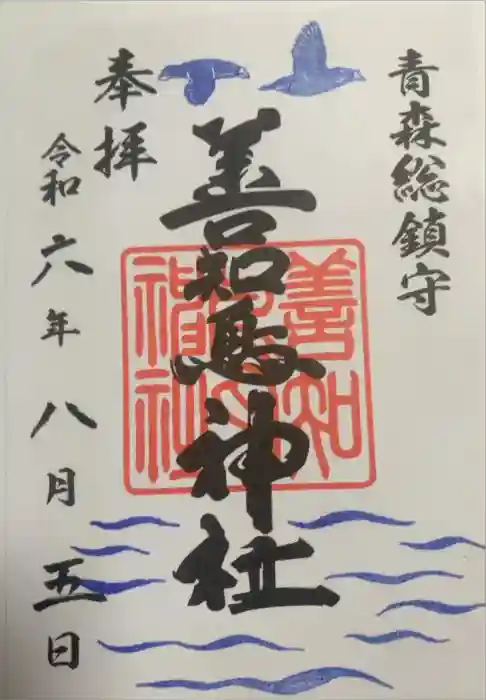 青森総鎮守
善知鳥神社
奉拝
令和六年八月五日
善知鳥神社